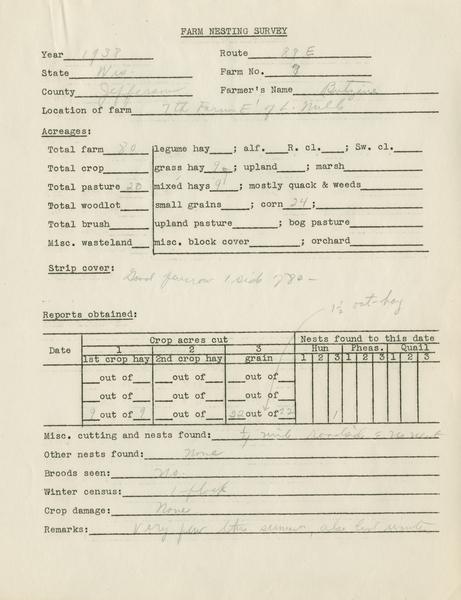 FARM NESTING SURVEY
Year 1938 Route 88 E
State Wis. Farm No. 9
County Jefferson Farmer's Name
Location of farm 7th Farm E' of L. Mills
Acreages:
Total farm 80 legume hay ; alf. R. cl. ; Sw. cl.
Total crop grass hay ; upland ; marsh
Total pasture 20 mixed hays 9 ; mostly quack & weeds
Total woodlot small grains ; corn 24 ;
Total brush upland pasture ; bog pasture
Misc. wasteland misc. block cover ; orchard
Strip cover: Good 1 side
1½ oat-hay
Reports obtained:
Crop acres cut Nests found to this date
Date 1 2 3 Hun Pheas. Quail
1st crop hay 2nd crop hay grain 1 2 3 1 2 3 1 2 3
out of out of out of
out of out of out of
9 out of 9 out of 22 out of 22 1
Misc. cutting and nests found: mile roadside
Other nests found: None
Broods seen: No.
Winter census: 1 flock
Crop damage: None
Remarks: Very few this summer, also last winter